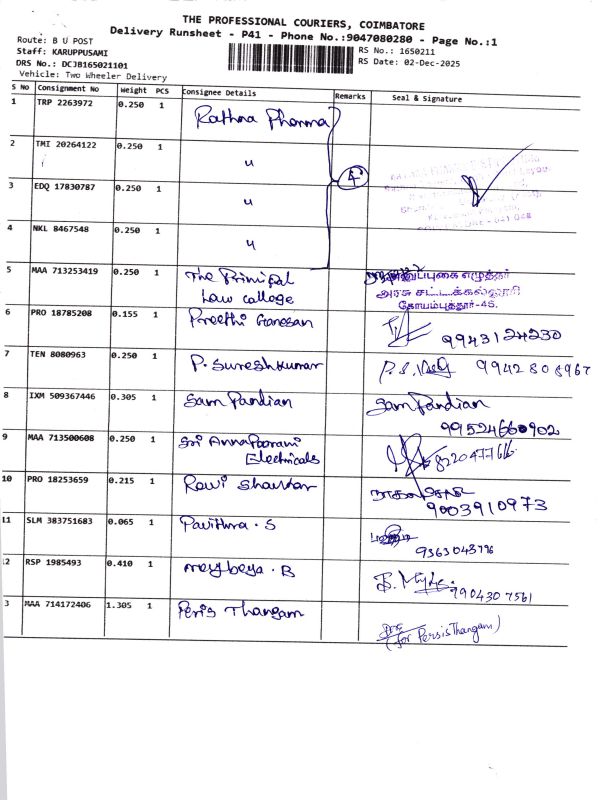 THE PROFESSIONAL COURIERS, COIMBATORE
Delivery Runsheet - P41 - Phone No.:9047080280 - Page No.:1
Route: B U POST
Staff: KARUPPUSAMI
DRS No.: DCJB165021101
Vehicle: Two Wheeler Delivery
RS No.: 1650211
RS Date: 02-Dec-2025
S No Consignment No Weight PCS Consignee Details Remarks Seal & Signature
1 TRP 2263972 0.250 1 Rathna Pharma
2 TMI 20264122 0.250 1 "
3 EDQ 17830787 0.250 1 "
4 NKL 8467548 0.250 1 "
4
5 MAA 713253419 0.250 1 The Prinipal
Law college
எழுத்தர்
அரசு சட்டக்கல்லூரி
கோயம்புத்தூர்-46.
6 PRO 18785208 0.155 1 Preethi Ganesan 9943124230
7 TEN 8080963 0.250 1 P. Sureshkumar
8 IXM 509367446 0.305 1 Sam Pandian Sam Pandian
9 MAA 713500608 0.250 1 Sri Annapoorani
Electricals
10 PRO 18253659 0.215 1 Ravi Shankar
9003910973
11 SLM 383751683 0.065 1 Pavithra . S
12 RSP 1985493 0.410 1
9904307561
3 MAA 714172406 1.305 1 Peris Thangam
(for Persis Thangam)